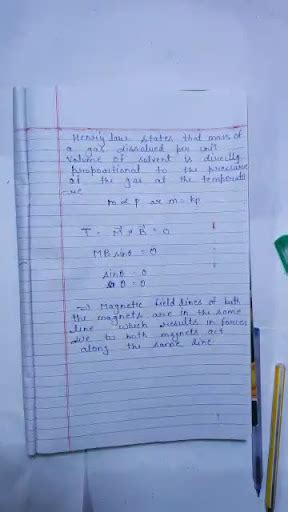 Henry's law states that mass of
a gas dissolved per unit
volume of solvent is directly
propotional to the pressure
of the gas at the temperat
-ure
m α P or m = kp
T = M × B = 0
MB sinθ = 0
sinθ = 0
θ = 0
=> Magnetic field lines of both
the magnets are in the same
line which results in forces
due to both magnets act
along the same line